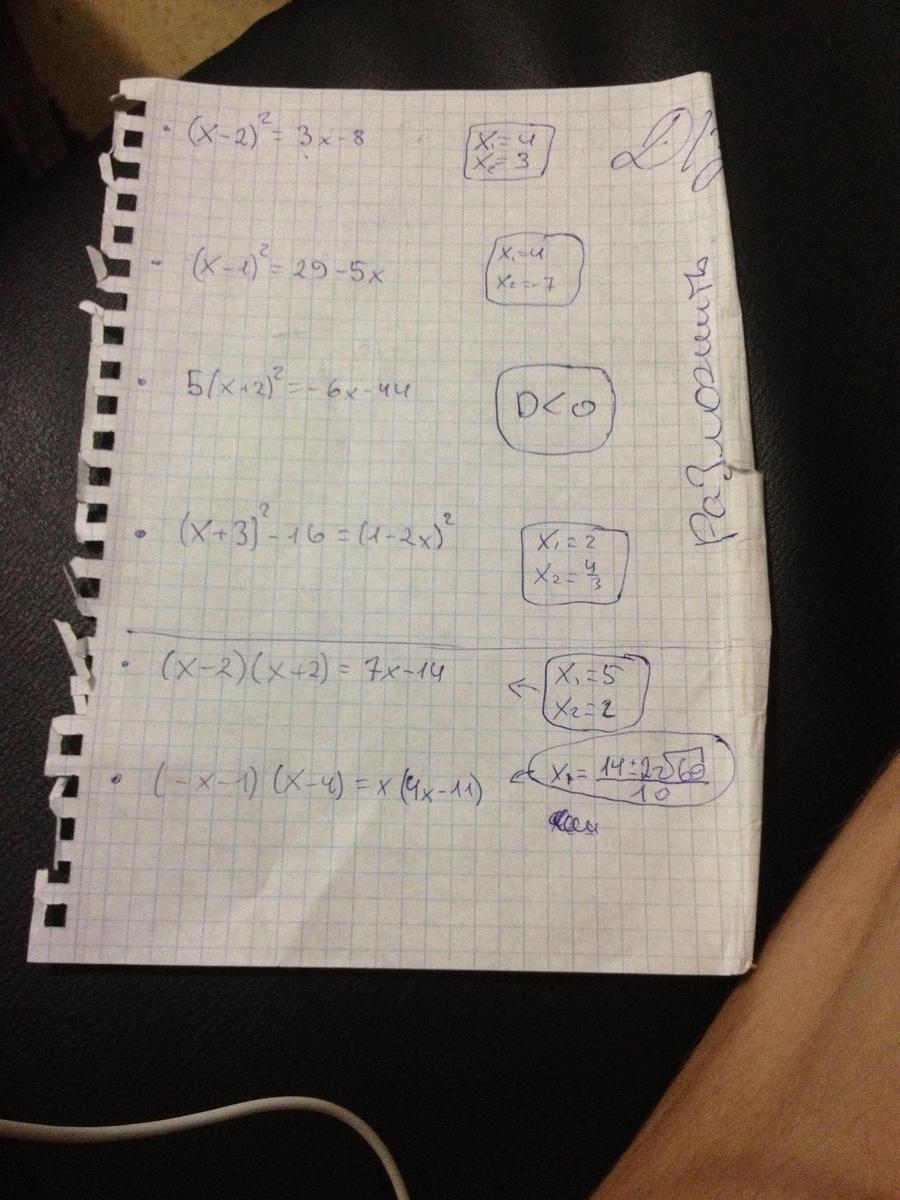 (x-2)² = 3x-8
x₁=4
x₂=3
(x-1)² = 29-5x
x₁=4
x₂=-7
5(x+2)² = -6x-44
D<0
(x+3)² - 16 = (1-2x)²
x₁=2
x₂=4/3
(x-2)(x+2) = 7x-14
← x₁=5
x₂=2
(-x-1)(x-4) = x(4x-11)
Разложить